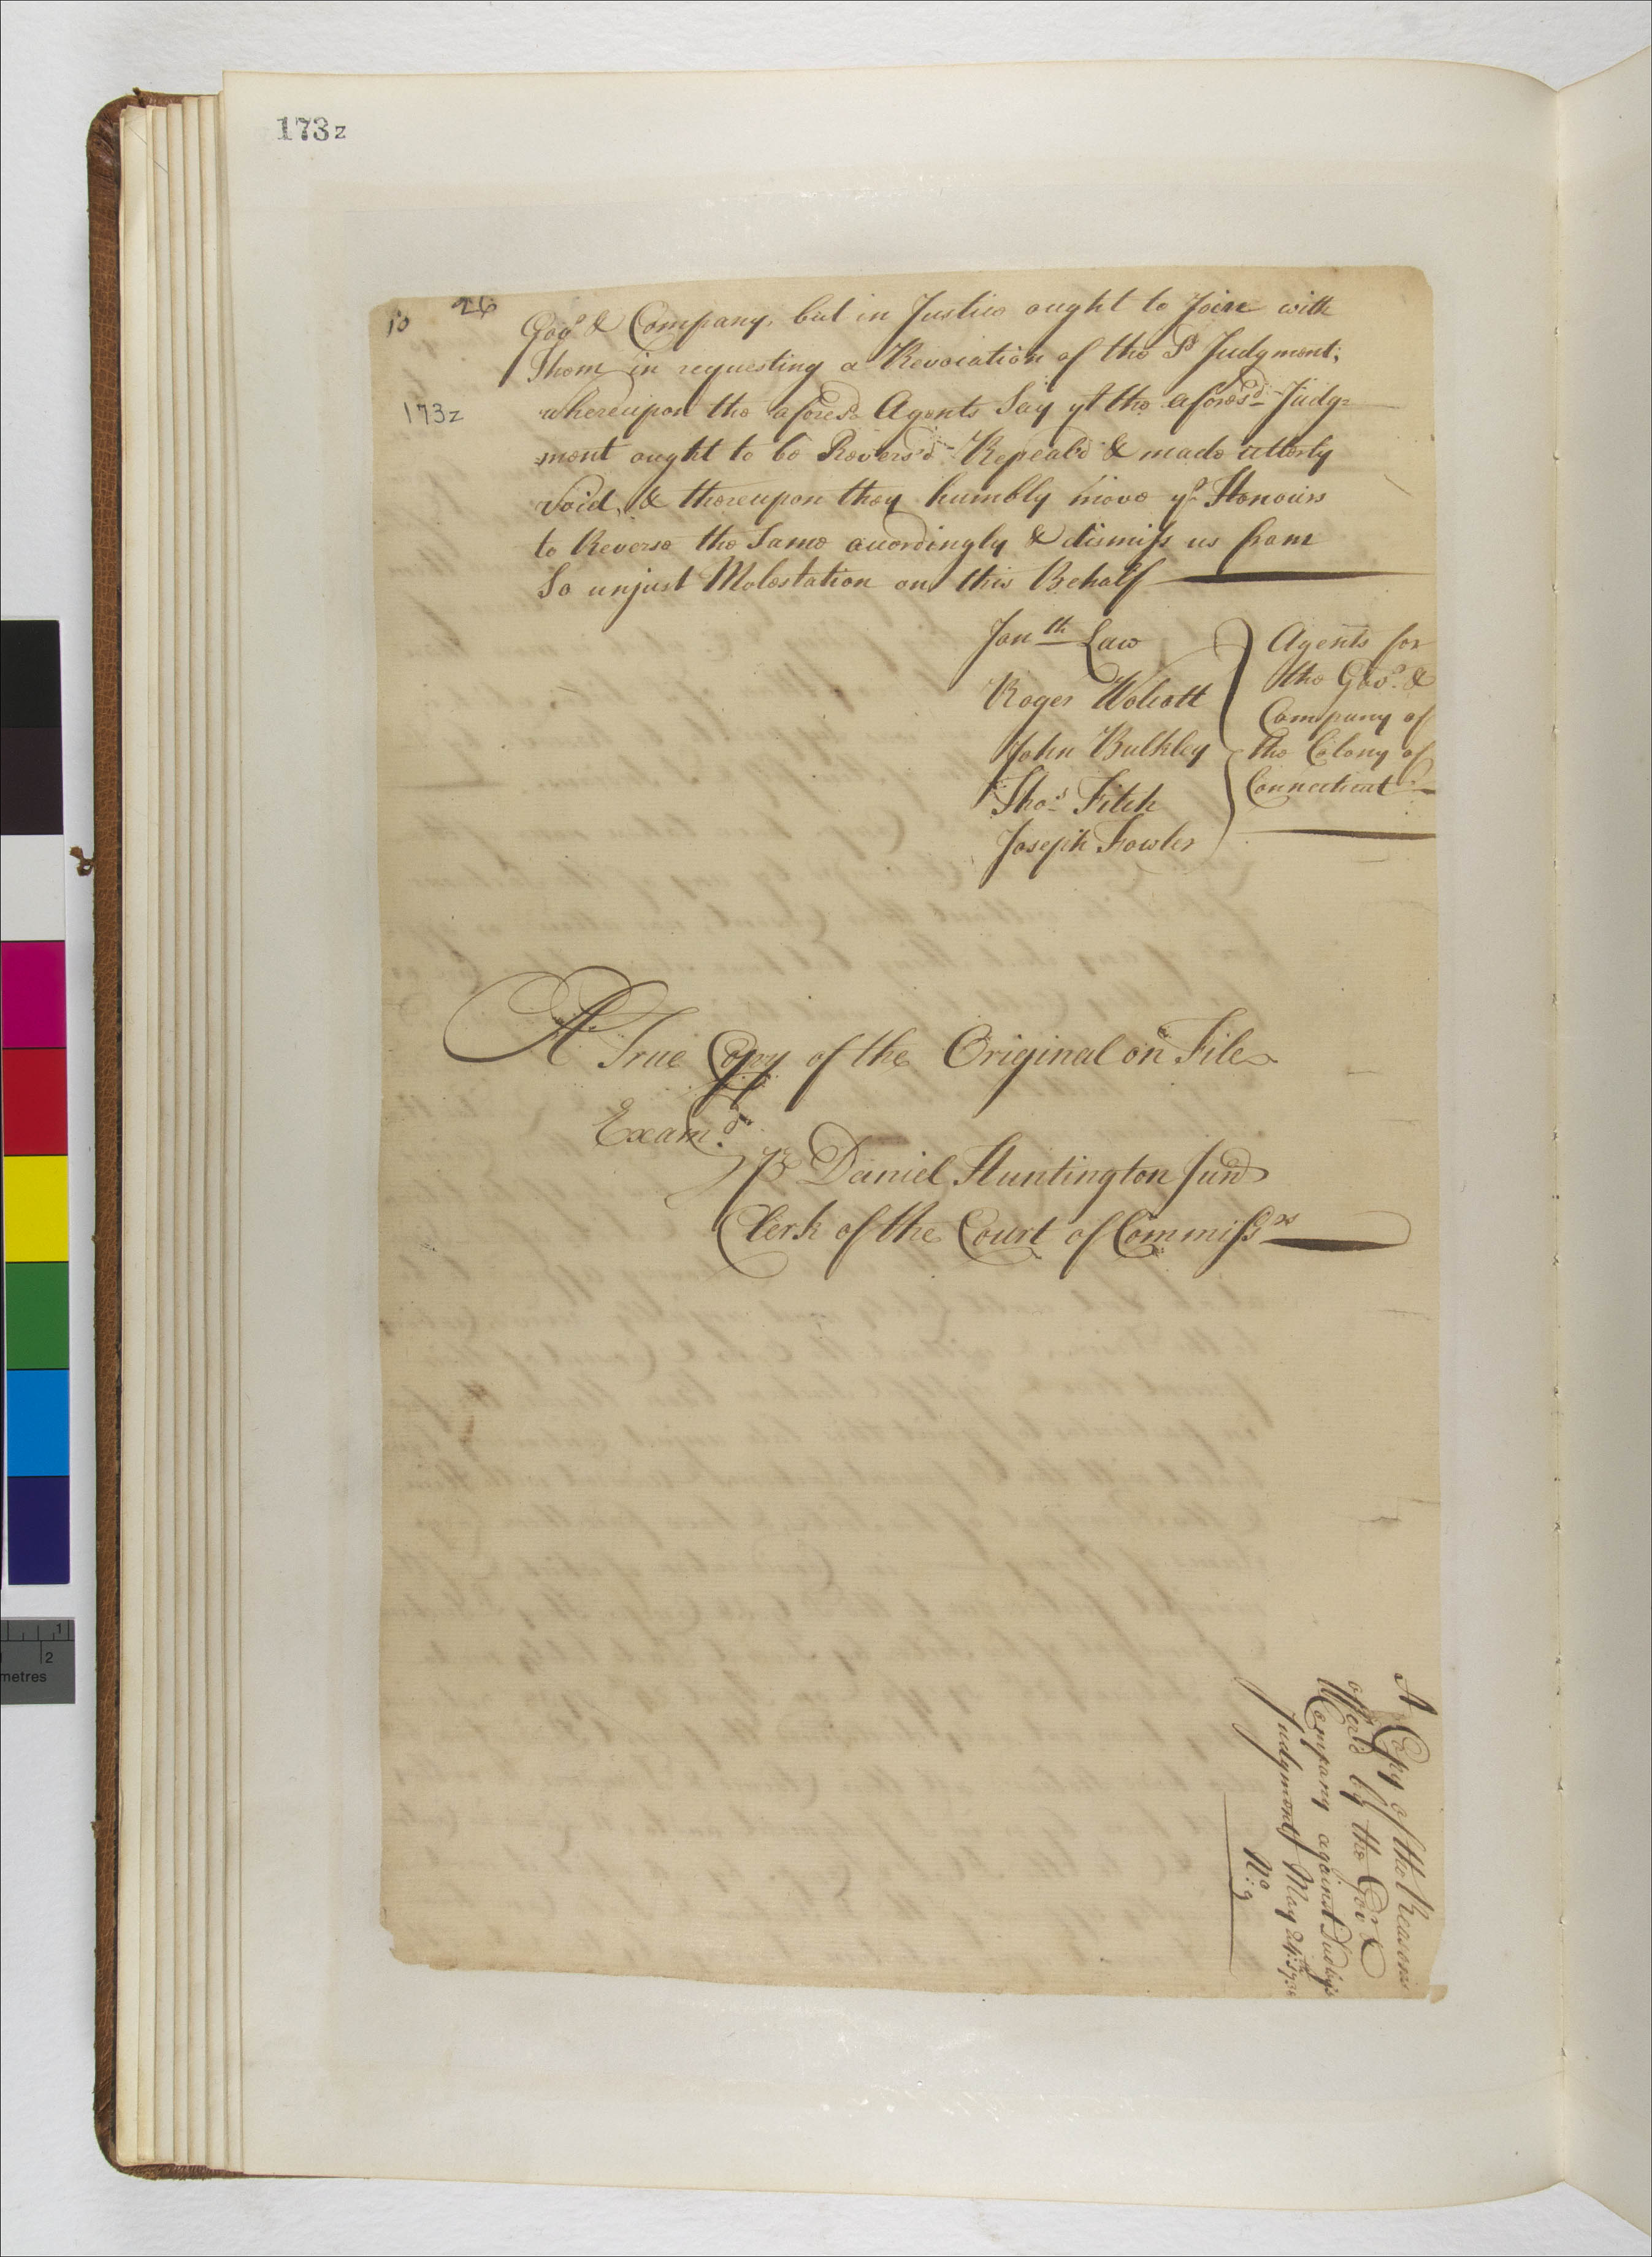 173z
10 26
Govr & Company, but in Justice ought to Joine with
Them in requesting a Revocation of the Sd Judgment;
173z
whereupon the aforesd Agents Say yt the aforesd Judg=
=ment ought to be Revers'd Repeal'd & made utterly
Void, & thereupon they humbly move yr Honours
to Reverse the Same accordingly & dismiss us from
So unjust Molestation on this Behalf
Jonth Law
Roger Wolcott
John Bulkley
Thos Fitch
Joseph Fowler
Agents for
the Govr &
Company of
the Colony of
Connecticut
A True Copy of the Original on File
Examd
pr Daniel Huntington Junr
Clerk of the Court of Commissrs
A Copy of the Reasons
offerd by the Govr &
Company against Dudleys
Judgment May 24th 1738
No: 9
1
2
metres